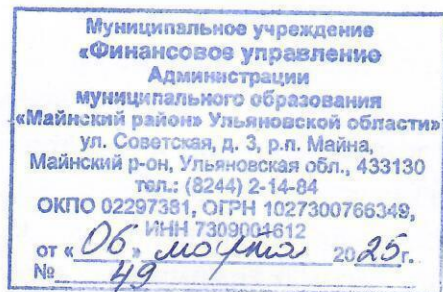 Муниципальное учреждение
«Финансовое управление
Администрации
муниципального образования
«Майнский район» Ульяновской области»
ул. Советская, д. 3, р.п. Майна,
Майнский р-он, Ульяновская обл., 433130
тел.: (8244) 2-14-84
ОКПО 02297381, ОГРН 1027300766349,
ИНН 7309001612
от «06» марта 2025г.
№ 49